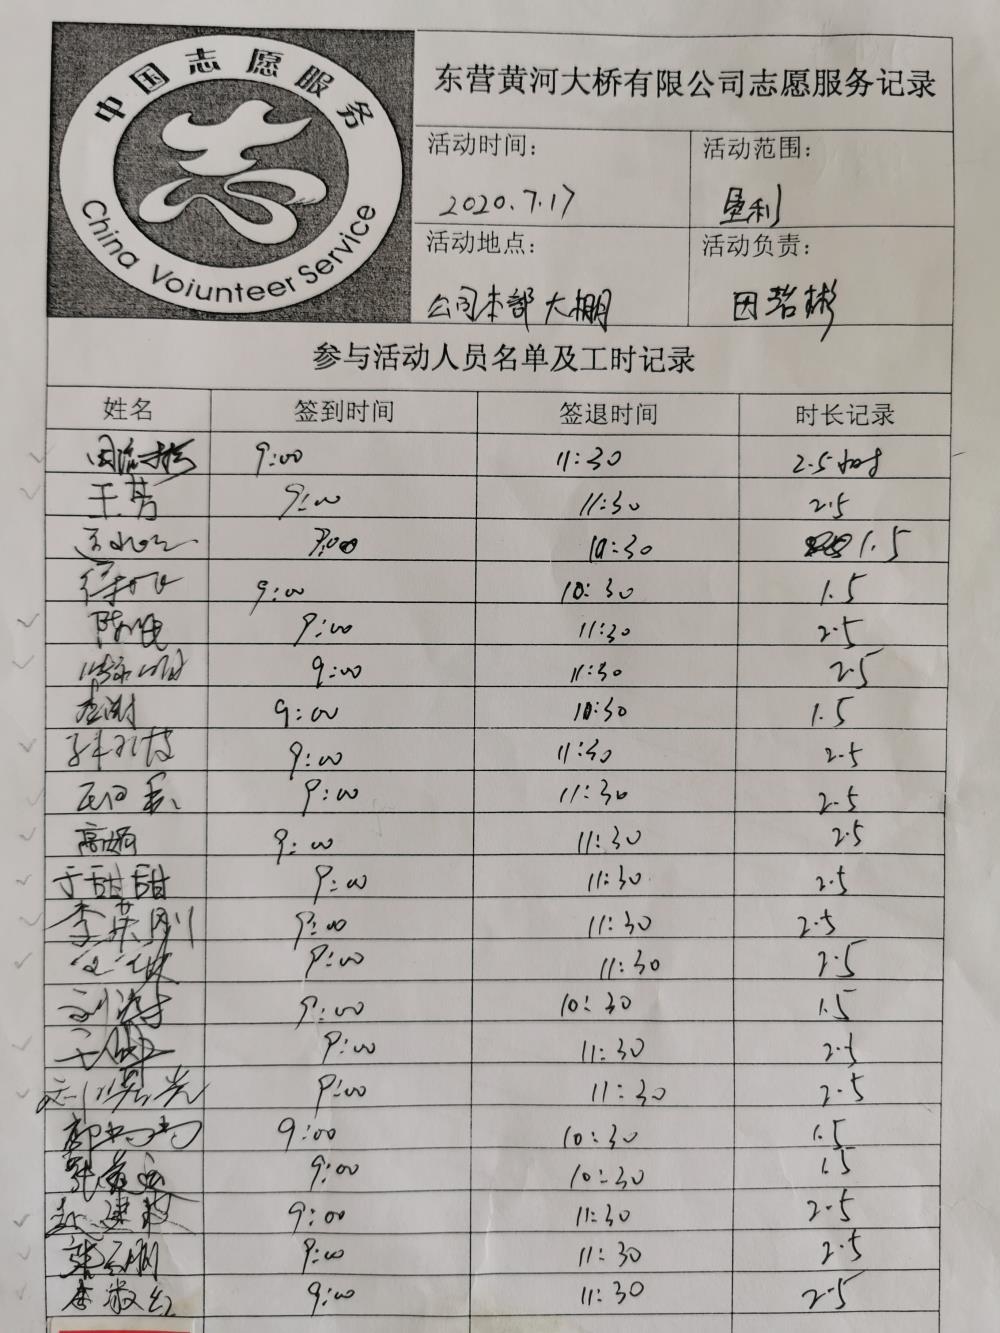 中国志愿服务
China Voiunteer Service
东营黄河大桥有限公司志愿服务记录
活动时间：
活动范围：
2020.7.17
垦利
活动地点：
活动负责：
公司本部大棚
参与活动人员名单及工时记录
姓名 签到时间 签退时间 时长记录
9:00 11:30 2.5小时
王芳 9:00 11:30 2.5
9:00 10:30 1.5
9:00 10:30 1.5
9:00 11:30 2.5
9:00 11:30 2.5
9:00 10:30 1.5
9:00 11:30 2.5
9:00 11:30 2.5
高娟 9:00 11:30 2.5
于甜甜 9:00 11:30 2.5
李英刚 9:00 11:30 2.5
9:00 11:30 2.5
刘涛 9:00 10:30 1.5
9:00 11:30 2.5
9:00 11:30 2.5
9:00 10:30 1.5
9:00 10:30 1.5
9:00 11:30 2.5
9:00 11:30 2.5
李淑红 9:00 11:30 2.5